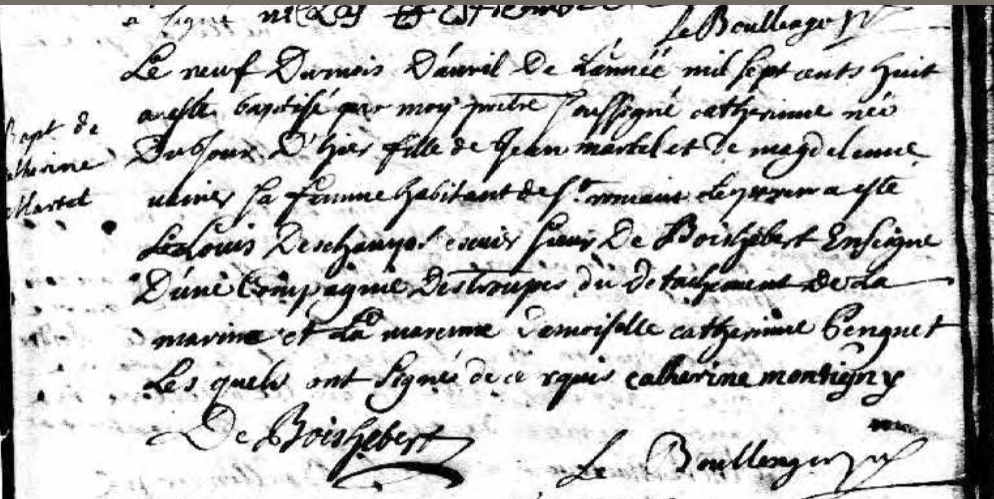 a signé
Le Boullenger
Le neuf Dumois Dauril De Lannéé mil sept cents huit
a esté baptisé par moy prêtre soussigné catherinne néé
Bapt de
catherine
Martel
Dujour D'hier fille de Jean martel et de magdelenne
sa femme habitant de St. romain Le parein a esté
Le Louis Deschamps escuier sieur De Boishébert Enseigne
Dune Compagnie Destroupes du détachement de La
marine et La marenne damoiselle catherinne Genguet
Les quels ont signé de ce rquis catherine montigny
De Boishebert
Le Boullenger